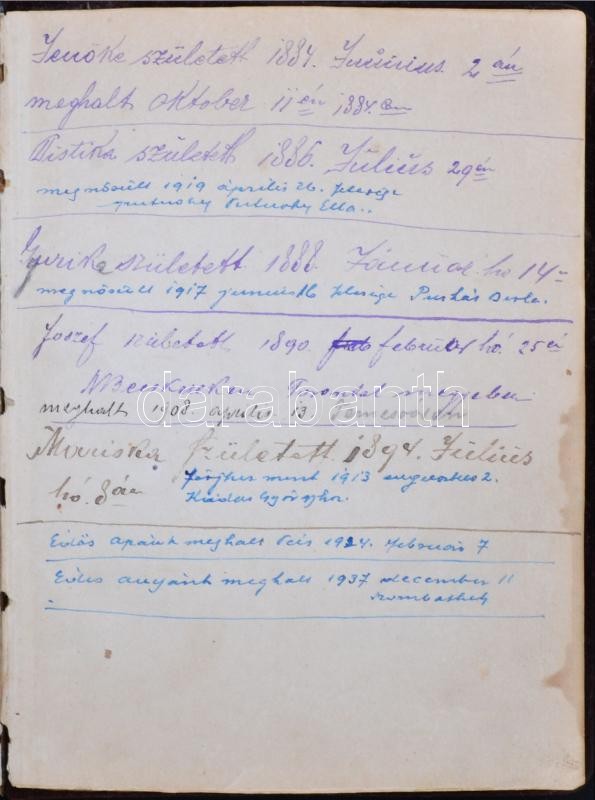 Jenőke született 1884. Június 2 án
meghalt Oktober 11 én 1884. ben
Pistika született 1886. Július 29 én
megnősült 1919 április 26. felesége
Puturóky Ella..
Gyurika született 1888 Január hó 14-
megnősült 1917 junius 16 felesége Puskás
Joszef született 1890. feb február hó. 25 én
N Becskereken Torontál megyében
meghalt 1908. április 13 Temesváron
Mariska született 1894. Július
hó. 8án
férjhez ment 1913 augusztus 2.
Kádas Györgyhöz.
Édös apánk meghalt 1924. február 7
Édes anyánk meghalt 1937 december 11
Szombathely
darabanth